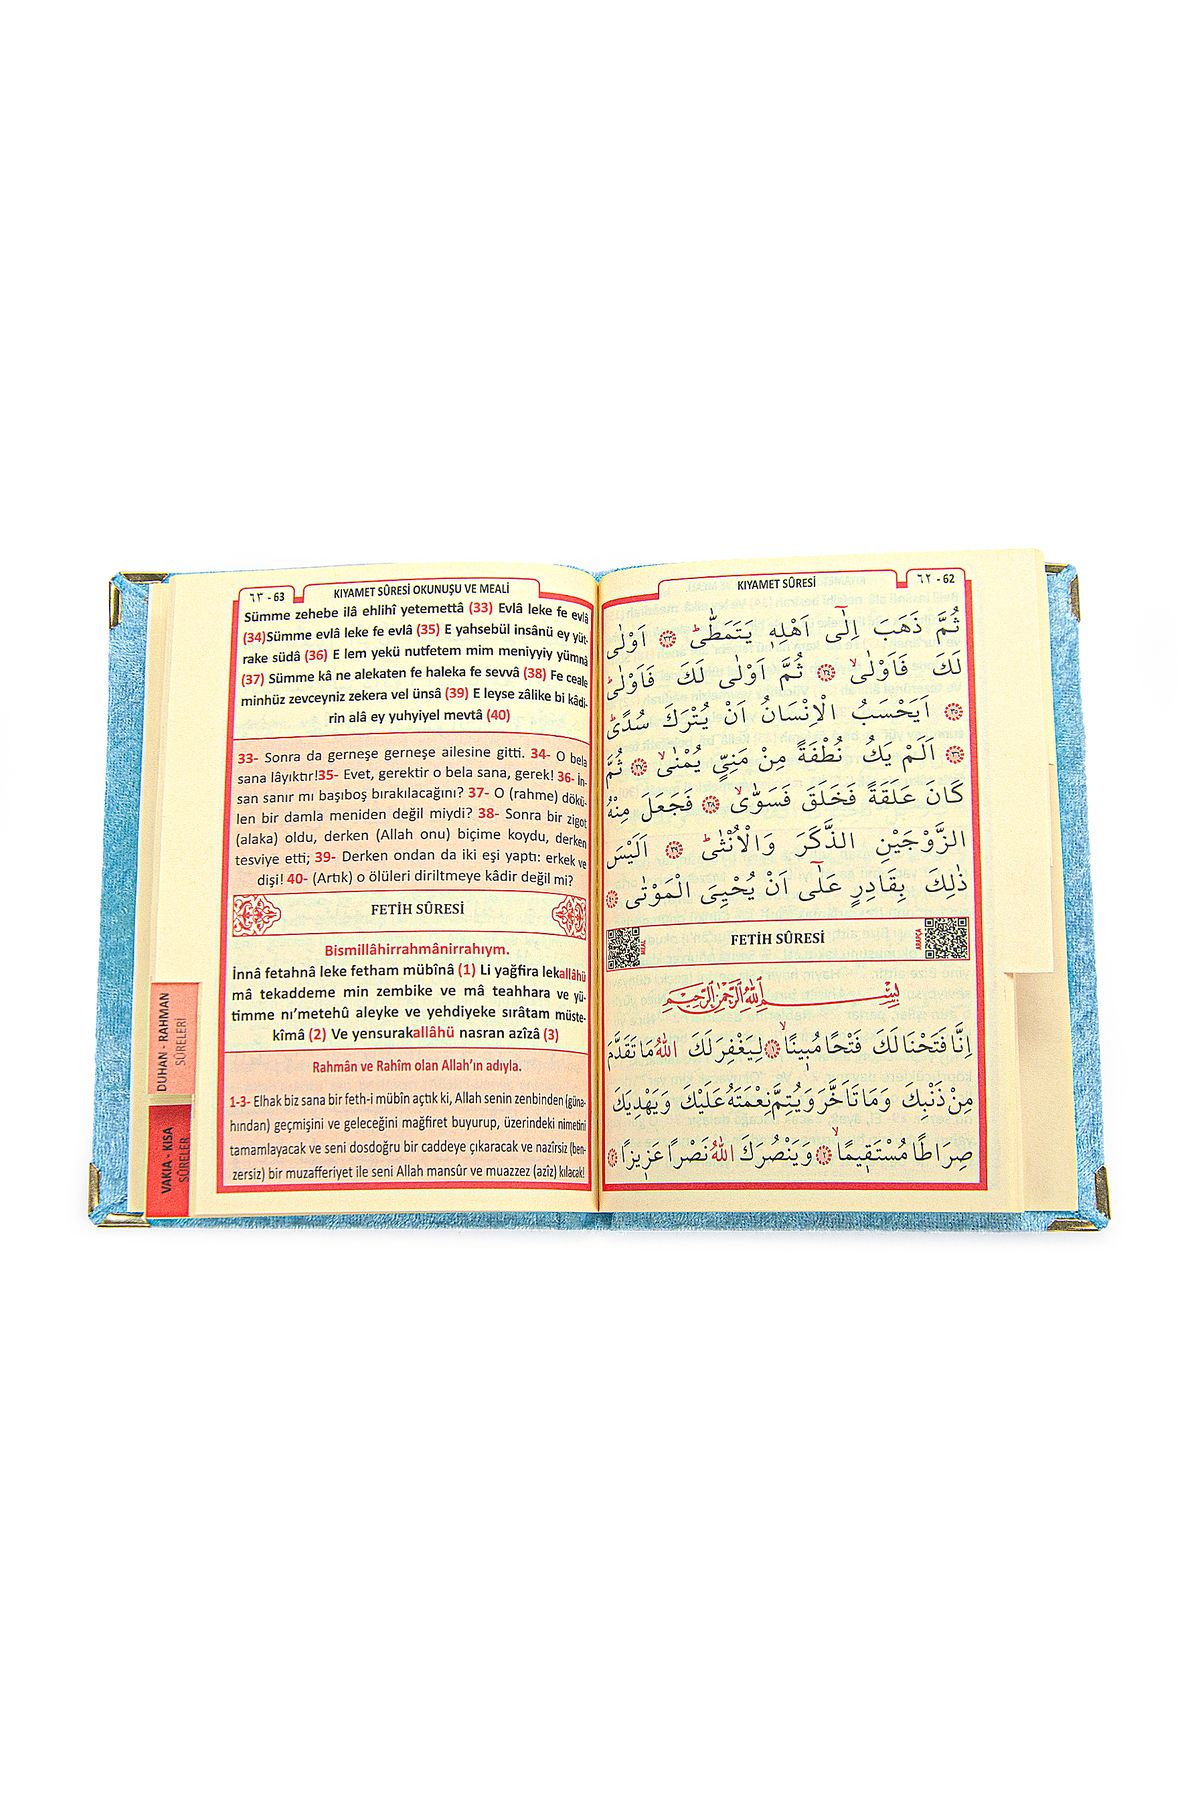 KIYAMET SÛRESİ
٦٢ - 62
ثُمَّ ذَهَبَ اِلٰٓى اَهْلِهٖ يَتَمَطّٰىۜ ﴿٣٣﴾ اَوْلٰى
لَكَ فَاَوْلٰىۙ ﴿٣٤﴾ ثُمَّ اَوْلٰى لَكَ فَاَوْلٰىۜ
﴿٣٥﴾ اَيَحْسَبُ الْاِنْسَانُ اَنْ يُتْرَكَ سُدًىۜ
﴿٣٦﴾ اَلَمْ يَكُ نُطْفَةً مِنْ مَنِيٍّ يُمْنٰىۙ ﴿٣٧﴾ ثُمَّ
كَانَ عَلَقَةً فَخَلَقَ فَسَوّٰىۙ ﴿٣٨﴾ فَجَعَلَ مِنْهُ
الزَّوْجَيْنِ الذَّكَرَ وَالْاُنْثٰىۜ ﴿٣٩﴾ اَلَيْسَ
ذٰلِكَ بِقَادِرٍ عَلٰٓى اَنْ يُحْيِيَ الْمَوْتٰى ﴿٤٠﴾
FETİH SÛRESİ
ARAPÇA
بِسْمِ اللّٰهِ الرَّحْمٰنِ الرَّحِيمِ
اِنَّا فَتَحْنَا لَكَ فَتْحًا مُبِينًاۙ ﴿١﴾ لِيَغْفِرَ لَكَ اللّٰهُ مَا تَقَدَّمَ
مِنْ ذَنْبِكَ وَمَا تَاَخَّرَ وَيُتِمَّ نِعْمَتَهُ عَلَيْكَ وَيَهْدِيَكَ
صِرَاطًا مُسْتَقِيمًاۙ ﴿٢﴾ وَيَنْصُرَكَ اللّٰهُ نَصْرًا عَزِيزًا ﴿٣﴾
٦٣ - 63
KIYAMET SÛRESİ OKUNUŞU VE MEALİ
Sümme zehebe ilâ ehlihî yetemettâ (33) Evlâ leke fe evlâ
(34)Sümme evlâ leke fe evlâ (35) E yahsebül insânü ey yüt-
rake südâ (36) E lem yekü nutfetem mim meniyyiy yümnâ
(37) Sümme kâ ne alekaten fe haleka fe sevvâ (38) Fe ceale
minhüz zevceyniz zekera vel ünsâ (39) E leyse zâlike bi kâdi-
rin alâ ey yuhyiyel mevtâ (40)
33- Sonra da gerneşe gerneşe ailesine gitti. 34- O bela
sana lâyıktır!35- Evet, gerektir o bela sana, gerek! 36- İn-
san sanır mı başıboş bırakılacağını? 37- O (rahme) dökü-
len bir damla meniden değil miydi? 38- Sonra bir zigot
(alaka) oldu, derken (Allah onu) biçime koydu, derken
tesviye etti; 39- Derken ondan da iki eşi yaptı: erkek ve
dişi! 40- (Artık) o ölüleri diriltmeye kâdir değil mi?
FETİH SÛRESİ
Bismillâhirrahmânirrahıym.
İnnâ fetahnâ leke fetham mübînâ (1) Li yağfira lekallâhü
mâ tekaddeme min zembike ve mâ teahhara ve yü-
timme nı'metehû aleyke ve yehdiyeke sırâtam müste-
kîmâ (2) Ve yensurakallâhü nasran azîzâ (3)
Rahmân ve Rahîm olan Allah'ın adıyla.
1-3- Elhak biz sana bir feth-i mübîn açtık ki, Allah senin zenbinden (güna-
hından) geçmişini ve geleceğini mağfiret buyurup, üzerindeki nimetini
tamamlayacak ve seni dosdoğru bir caddeye çıkaracak ve nazîrsiz (ben-
zersiz) bir muzafferiyet ile seni Allah mansûr ve muazzez (azîz) kılacak!
DUHAN - RAHMAN
SÛRELERİ
VAKIA - KISA
SÛRELER